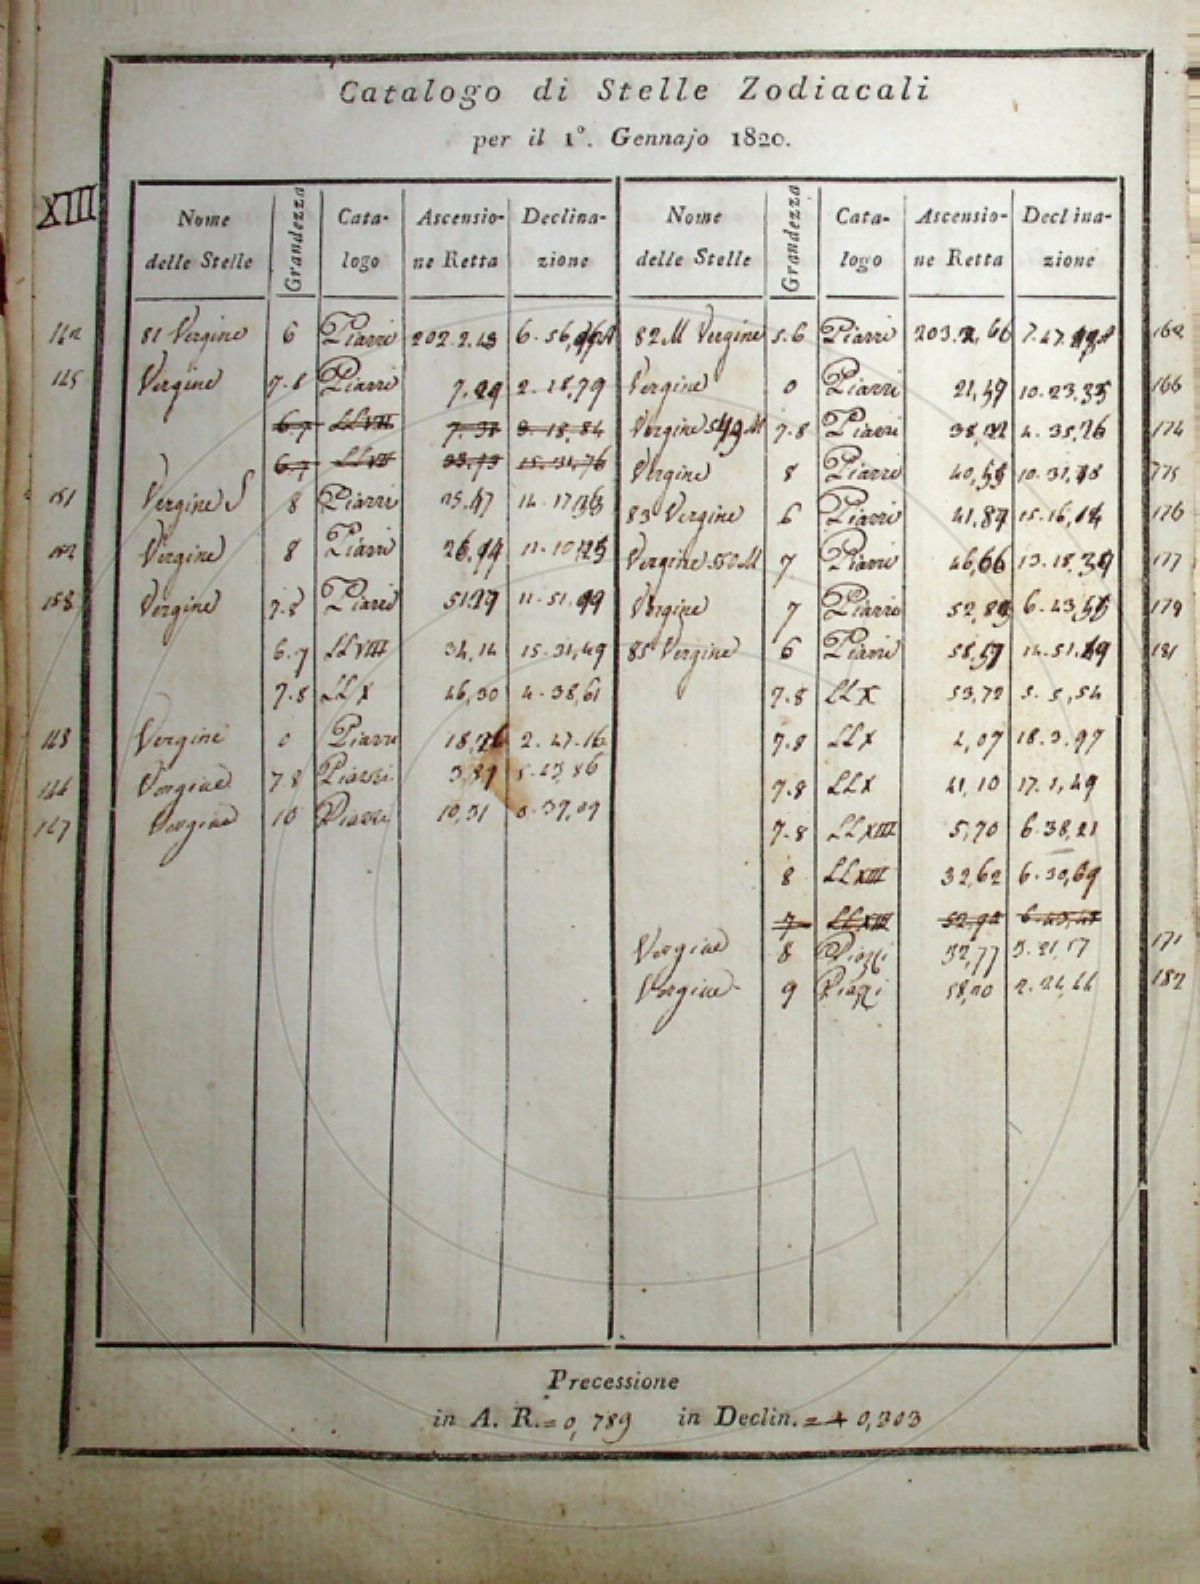 Catalogo di Stelle Zodiacali
per il 1°. Gennajo 1820.
XIII
Nome delle Stelle Grandezza Cata-logo Ascensio-ne Retta Declina-zione Nome delle Stelle Grandezza Cata-logo Ascensio-ne Retta Declina-zione
81 Vergine 6 Piazzi 202.2. 6.56, 82 M Vergine 5.6 Piazzi 203. 7.47.
Vergine 7.8 Piazzi 7. 2.18,79 Vergine 0 Piazzi 21, 10.23,35 166
6.7 LLVIII 7.38 3.18,84 Vergine 549 M 7.8 Piazzi 38, 4.35,26 174
6.7 LLVII 15.31,76 Vergine 8 Piazzi 40, 10.31, 175
151 Vergine S 8 Piazzi 14.17 83 Vergine 6 Piazzi 41,87 15.16,14 176
Vergine 8 Piazzi 11.10 Vergine 550 M 7 Piazzi 46,66 13.18,39 177
153 Vergine 7.8 Piazzi 51 11.51,99 Vergine 7 Piazzi 52,83 6.43, 179
6.7 LLVIII 34,14 15.31,49 85 Vergine 6 Piazzi 58,57 14.51, 181
7.8 LLX 46,30 4.38,61 7.8 LLX 53,72 5.5,54
143 Vergine 0 Piazzi 18, 2.47.16 7.8 LLX 4,07 18.3.97
144 Vergine 7.8 Piazzi 3,89 8.23,86 7.8 LLX 41,10 17.1,49
147 Vergine 10 Piazzi 10,31 37,09 7.8 LLXIII 5,70 6.38,21
8 LLXIII 32,62 6.30,69
7 LLXIII 52,92 6.43,48
Vergine 8 Piazzi 32,77 3.21,17 171
Vergine 9 Piazzi 58,20 2.24,44 182
Precessione
in A. R. = 0,789 in Declin. = + 0,303